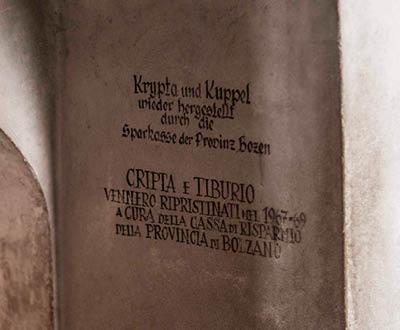 Krypta und Kuppel
wieder hergestellt
durch die
Sparkasse der Provinz Bozen
CRIPTA E TIBURIO
VENNERO RIPRISTINATI NEL 1967-69
A CURA DELLA CASSA DI RISPARMIO
DELLA PROVINCIA DI BOLZANO